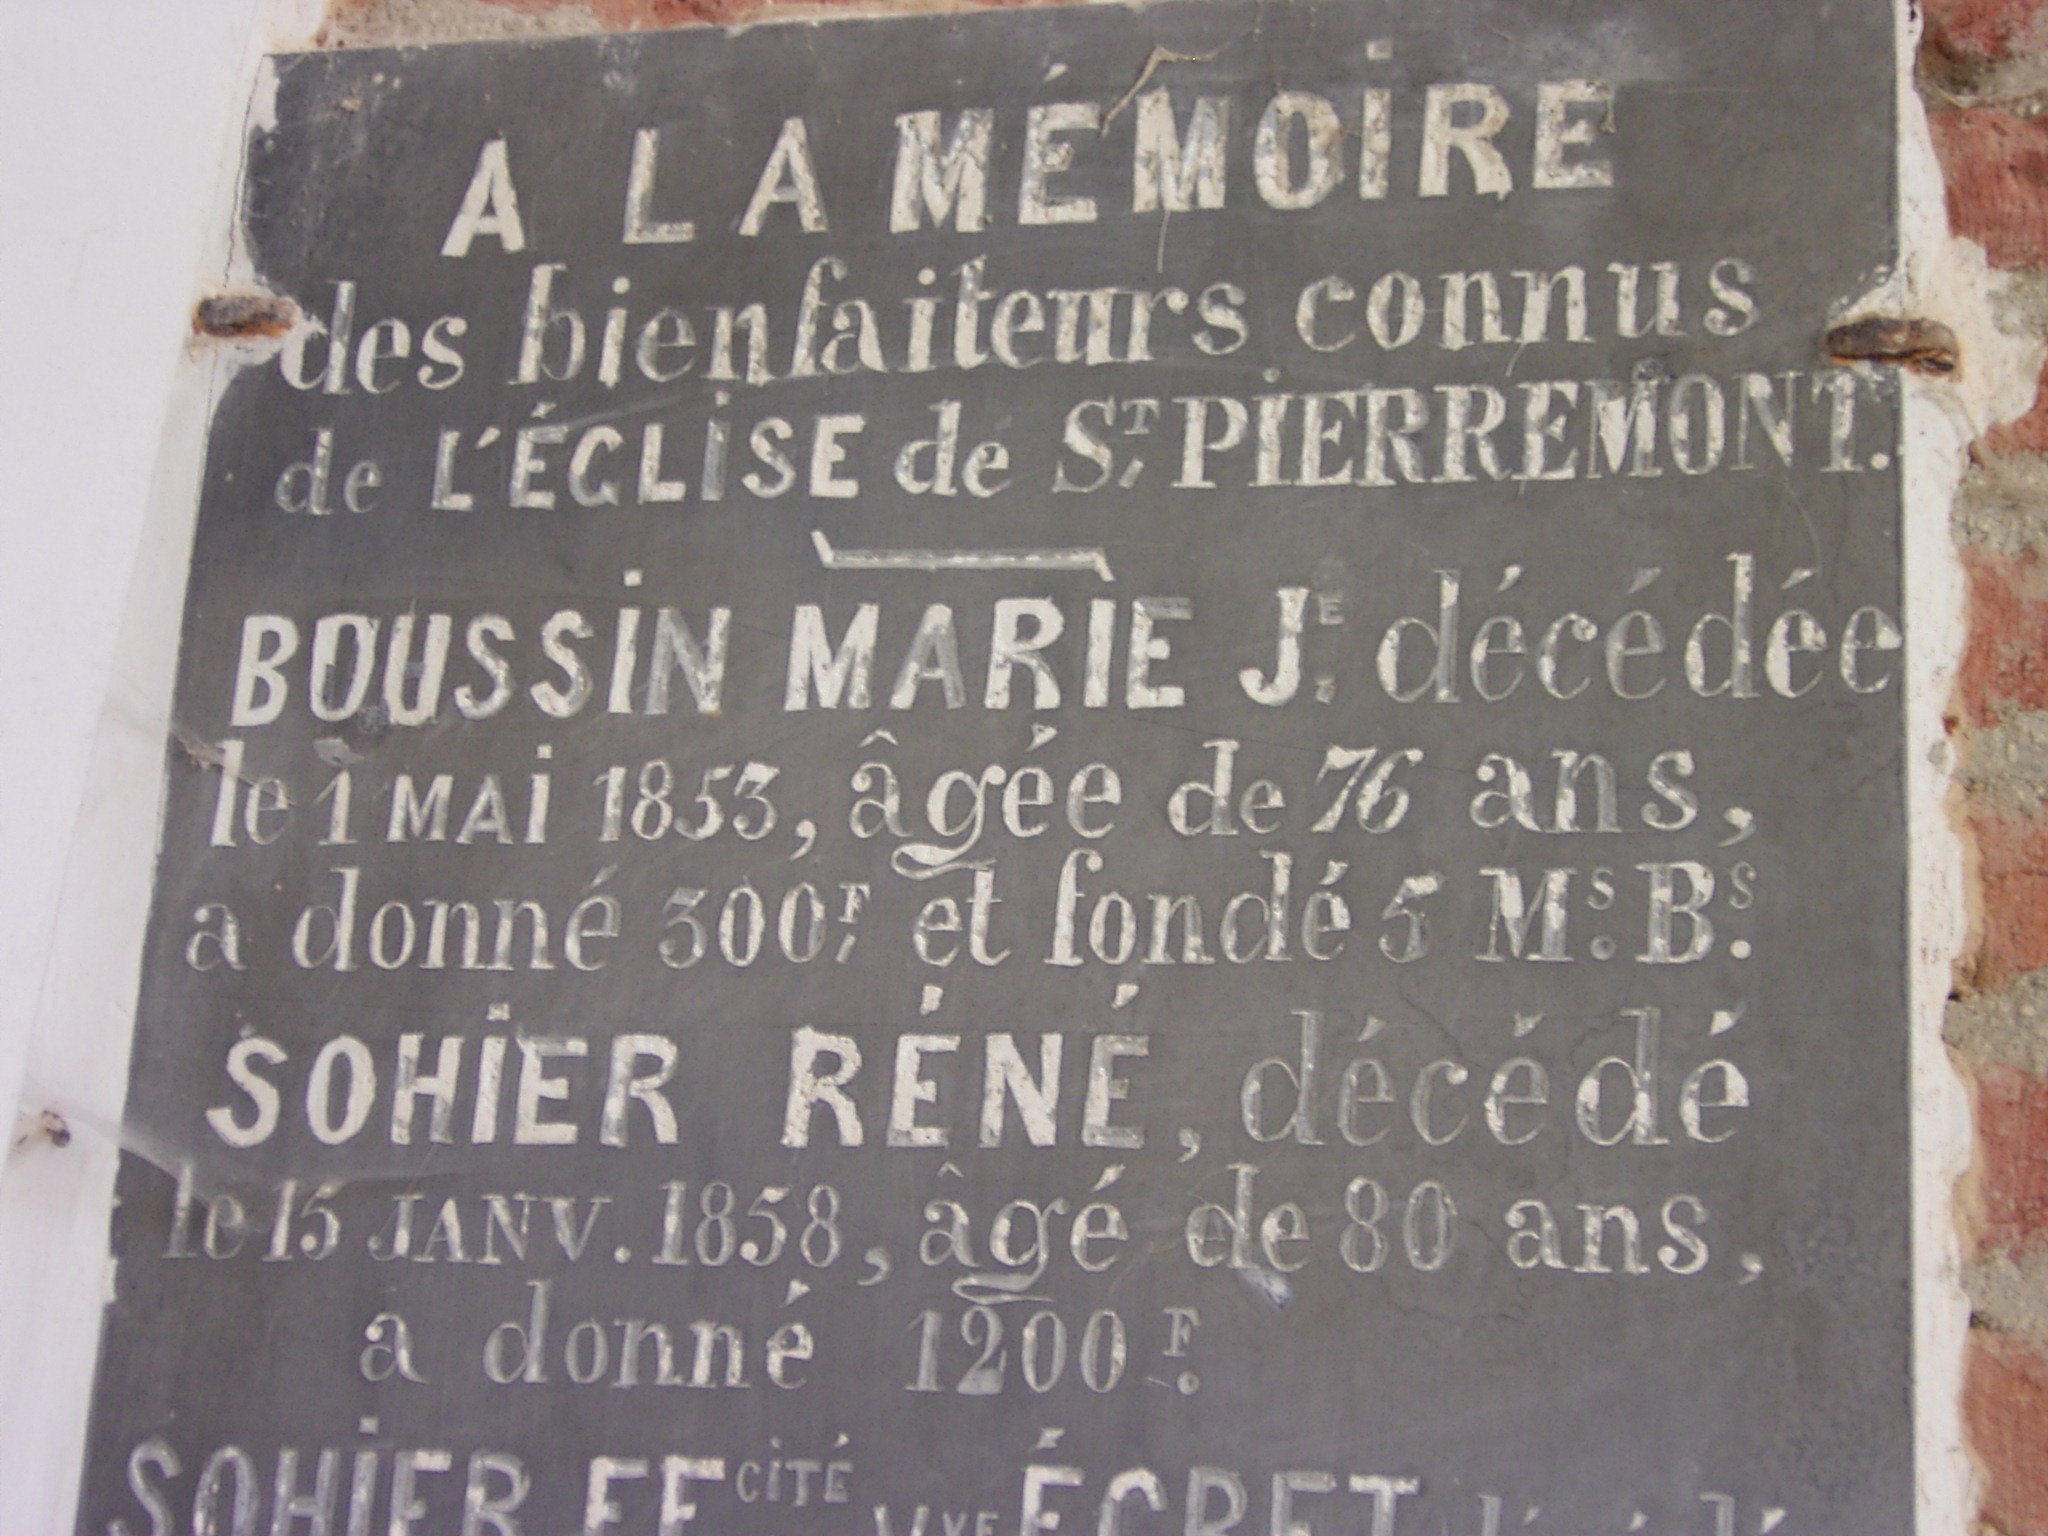 A LA MÉMOIRE
des bienfaiteurs connus
de L'ÉGLISE de ST, PIERREMONT.
BOUSSIN MARIE JE. décédée
le 1 MAI 1853, âgée de 76 ans,
a donné 300F, et fondé 5 Ms. Bs.
SOHIER RÉNÉ, décédé
le 15 JANV. 1858, âgé de 80 ans,
a donné 1200F.
SOHIER FECITÉ VVE